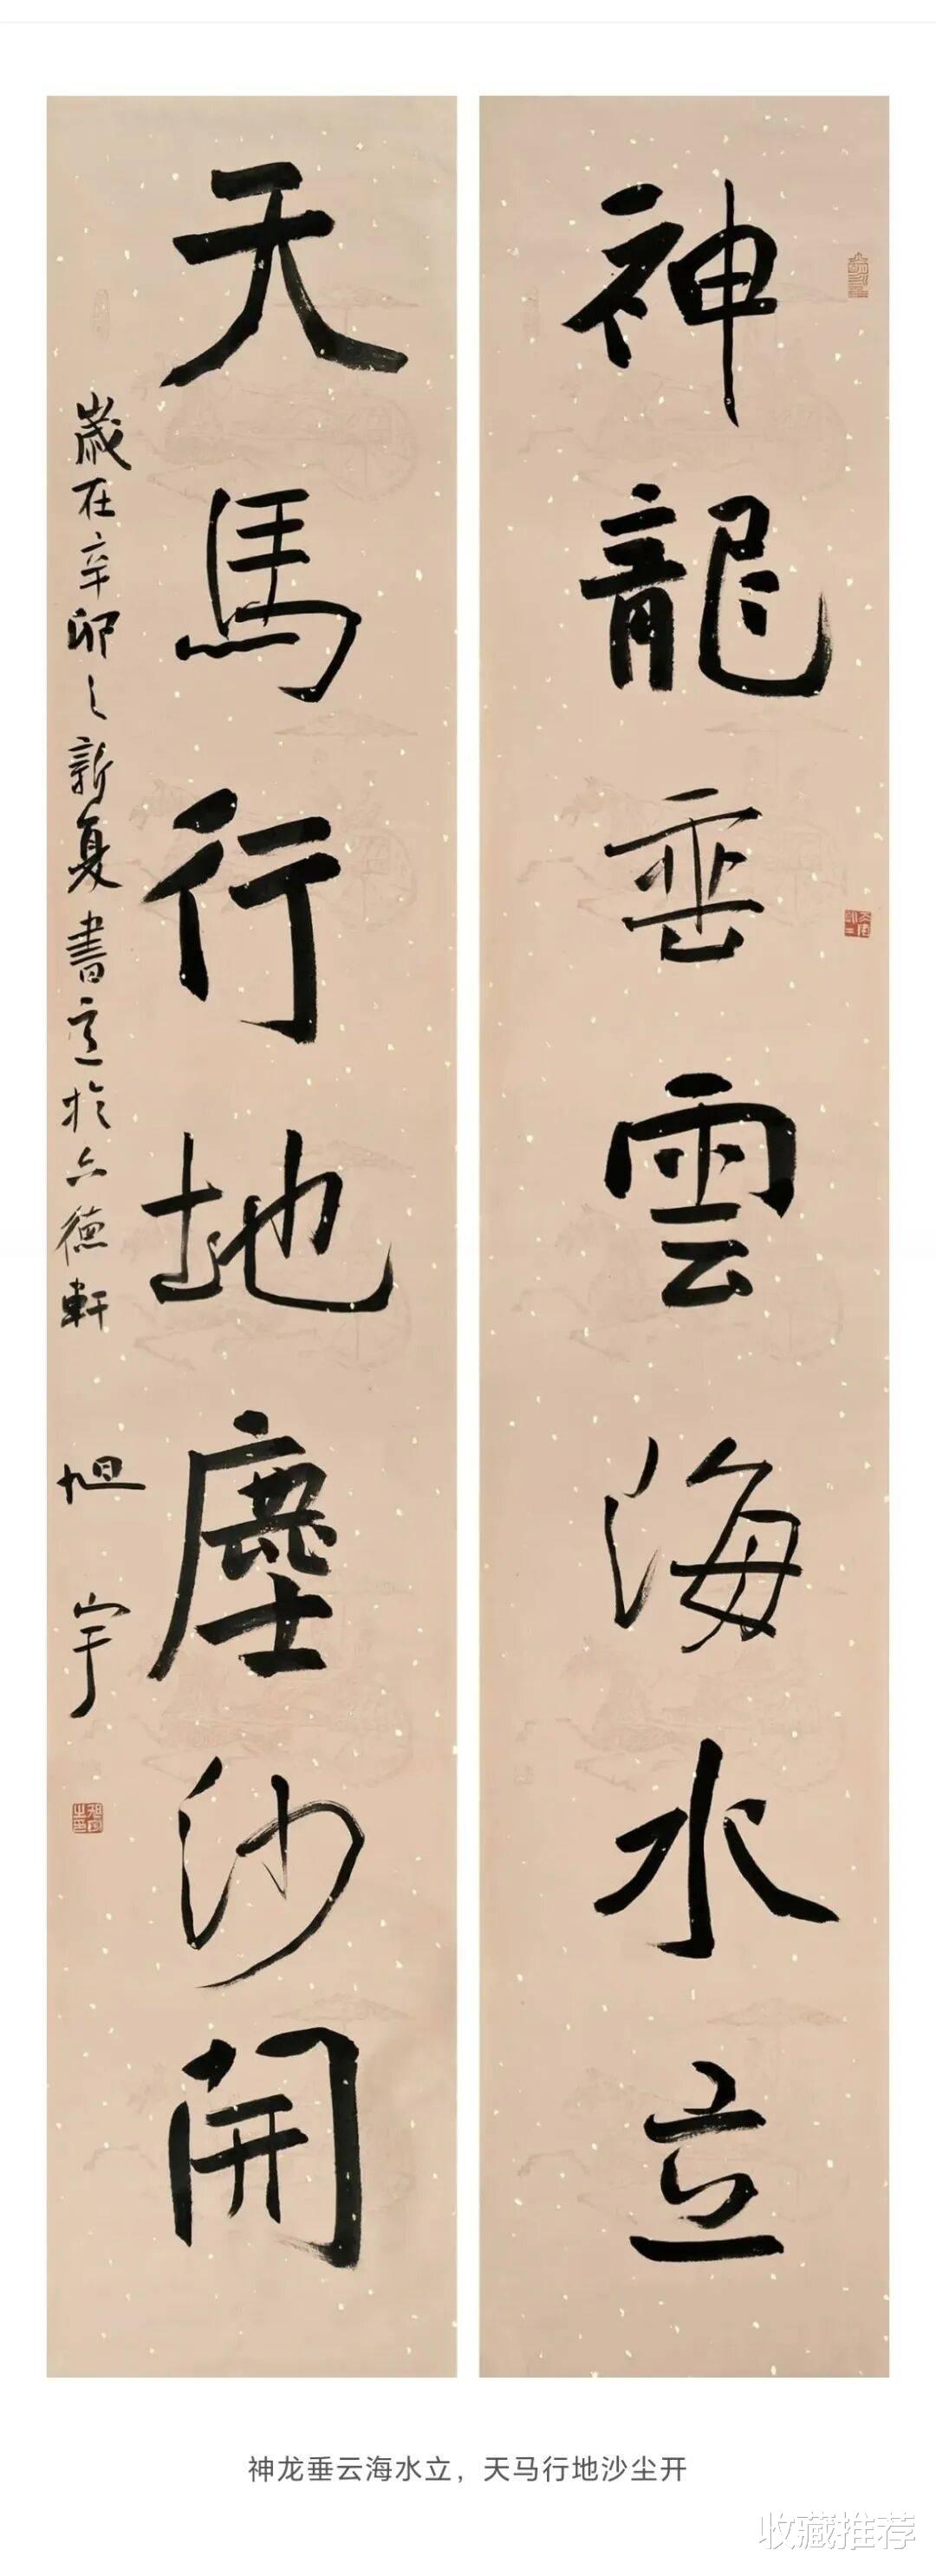 神龍垂雲海水立
天馬行地塵沙開
歲在辛卯之新夏書意於六德軒
旭宇
神龙垂云海水立，天马行地沙尘开
收藏推荐